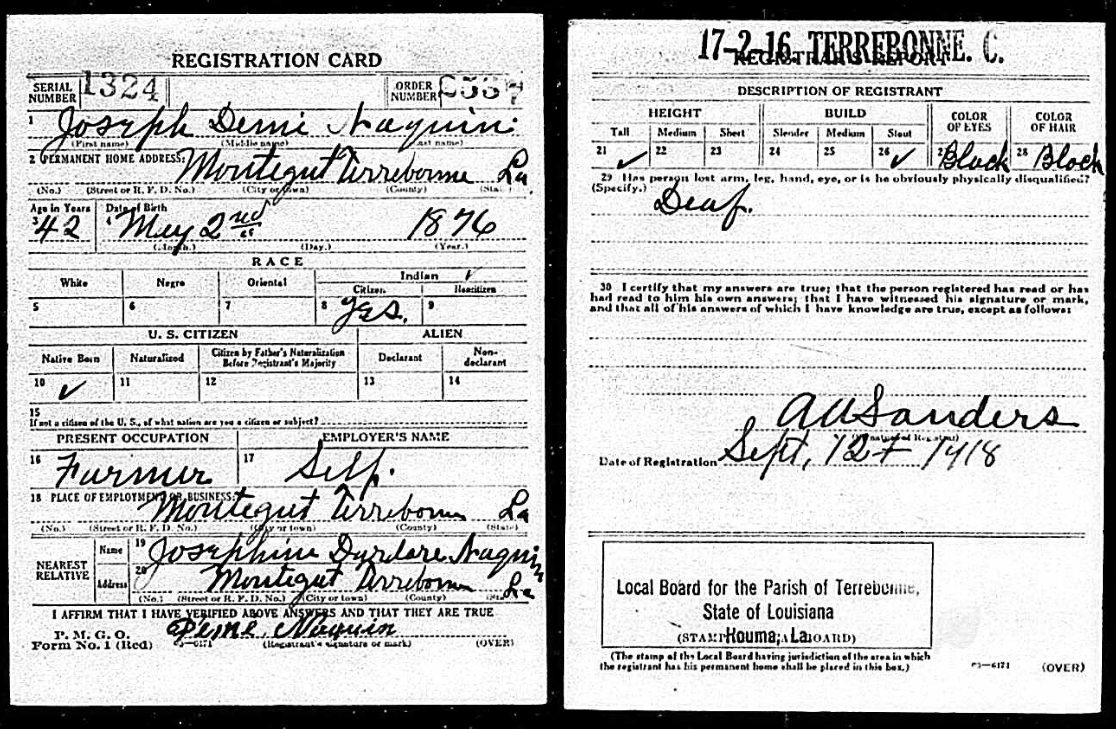 REGISTRATION CARD
SERIAL NUMBER 1324 ORDER NUMBER
1 Joseph Demi Naquin
(First name) (Middle name) Last name)
2 PERMANENT HOME ADDRESS: Montegut Terrebonne La
(No.) (Street or R. F. D. No.) (City or town) (County) (State)
Age in Years Date of Birth
3 42 4 May 2nd 1876
(Month.) (Day.) (Year.)
RACE
White Negro Oriental Indian ✓
Citizen Noncitizen
5 6 7 8 Yes. 9
U. S. CITIZEN ALIEN
Native Born Naturalized Citizen by Father's Naturalization Before Registrant's Majority Declarant Non-declarant
10 ✓ 11 12 13 14
15
If not a citizen of the U. S., of what nation are you a citizen or subject?
PRESENT OCCUPATION EMPLOYER'S NAME
16 Farmer 17 Self.
18 PLACE OF EMPLOYMENT OR BUSINESS: Montegut Terrebonne La
(No.) (Street or R. F. D. No.) (City or town) (County) (State)
NEAREST RELATIVE Name 19 Josephine Dardare Naquin
Address 20 Montegut Terrebonne La
(No.) (Street or R. F. D. No.) (City or town) (County) (State)
I AFFIRM THAT I HAVE VERIFIED ABOVE ANSWERS AND THAT THEY ARE TRUE
P. M. G. O.
Form No. 1 (Red) 03—6171 Deme Naquin
(Registrant's signature or mark) (OVER)
17-2-16 TERREBONNE. C.
REGISTRAR'S REPORT
DESCRIPTION OF REGISTRANT
HEIGHT BUILD COLOR OF EYES COLOR OF HAIR
Tall Medium Short Slender Medium Stout
21 ✓ 22 23 24 25 26 ✓ 27 Black 28 Black
29 Has person lost arm, leg, hand, eye, or is he obviously physically disqualified?
(Specify.) Deaf.
30 I certify that my answers are true; that the person registered has read or has
had read to him his own answers; that I have witnessed his signature or mark,
and that all of his answers of which I have knowledge are true, except as follows:
Sanders
(Signature of Registrar)
Date of Registration Sept, 12 1918
Local Board for the Parish of Terrebonne,
State of Louisiana
Houma, La.
(STAMP OF LOCAL BOARD)
(The stamp of the Local Board having jurisdiction of the area in which
the registrant has his permanent home shall be placed in this box.)
03—6171 (OVER)